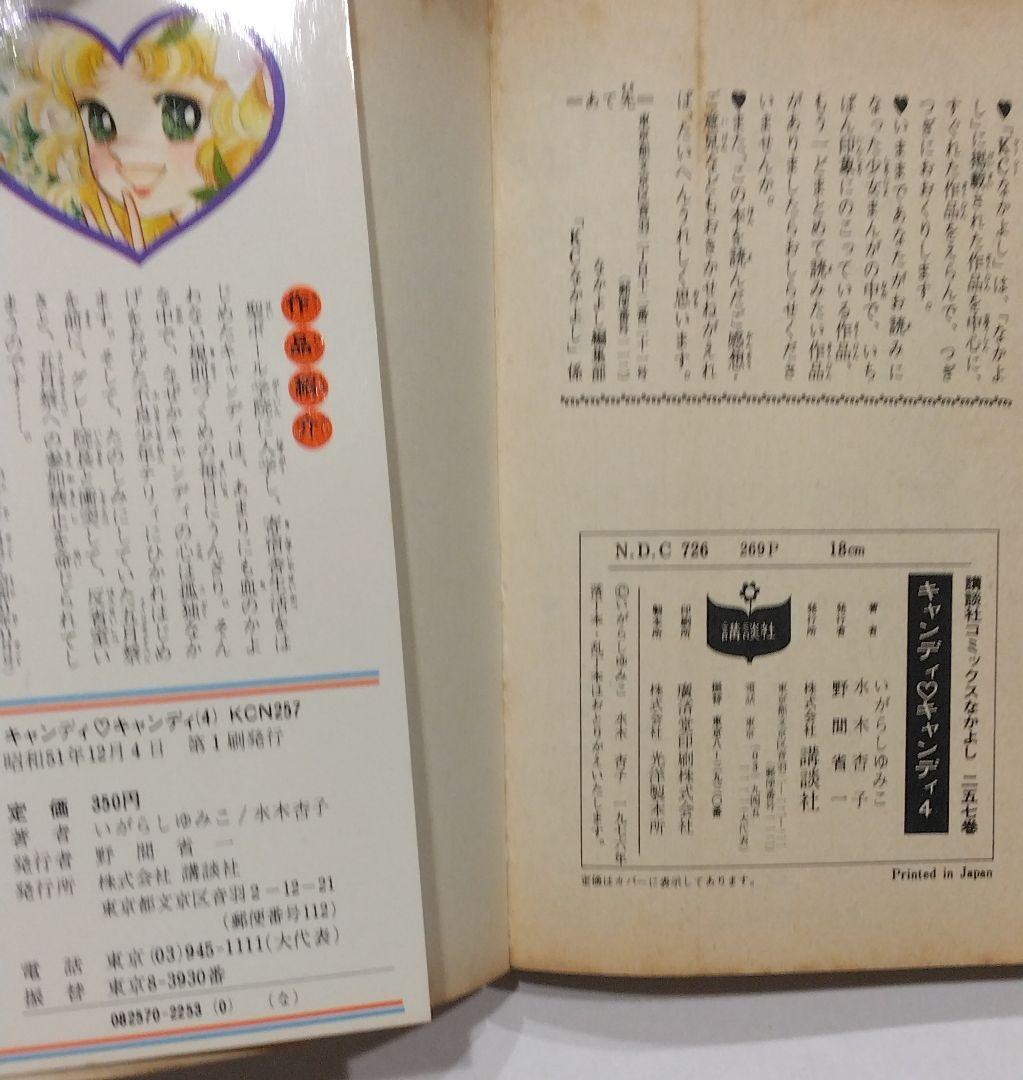 作品紹介
聖ポール学院に入学し、寄宿舎生活をは
じめたキャンディは、あまりにも血のかよ
わない規則づくめの毎日にうんざり。そん
な中で、なぜかキャンディの心は孤独なか
げをおびた不良少年テリィにひかれはじめ
ます。そして、たのしみにしていた五月祭
を前に、グレー院長と衝突して、反省室い
きと、五月祭への参加禁止を命じられてし
まうのです――。
キャンディ♡キャンディ(4) KCN257
昭和51年12月4日 第1刷発行
定価 350円
著者 いがらしゆみこ/水木杏子
発行者 野間省一
発行所 株式会社 講談社
東京都文京区音羽2-12-21
(郵便番号112)
電話 東京(03)945-1111(大代表)
振替 東京8-3930番
082570-2253 (0) (な)
♥『KCなかよし』は、『なかよ
し』に掲載された作品を中心に、
すぐれた作品をえらんで、つぎ
つぎにおおくりします。
♥いままであなたがお読みに
なった少女まんがの中で、いち
ばん印象にのこっている作品、
もう一どまとめて読みたい作品
がありましたらおしらせくださ
いませんか。
♥また、この本を読んだご感想・
ご意見などもおきかせねがえれ
ば、たいへんうれしく思います。
=あて先=
東京都文京区音羽二丁目十二番二十一号
(郵便番号一一二)
なかよし編集部
『KCなかよし』係
N.D.C 726 269P 18cm
講談社コミックスなかよし 二五七巻
キャンディ♡キャンディ 4
著者 いがらしゆみこ
水木杏子
発行者 野間省一
発行所 株式会社 講談社
講談社
印刷所 廣済堂印刷株式会社
製本所 株式会社 光洋製本所
©いがらしゆみこ 水木杏子 一九七六年
落丁本・乱丁本はおとりかえいたします。
定価はカバーに表示してあります。
Printed in Japan